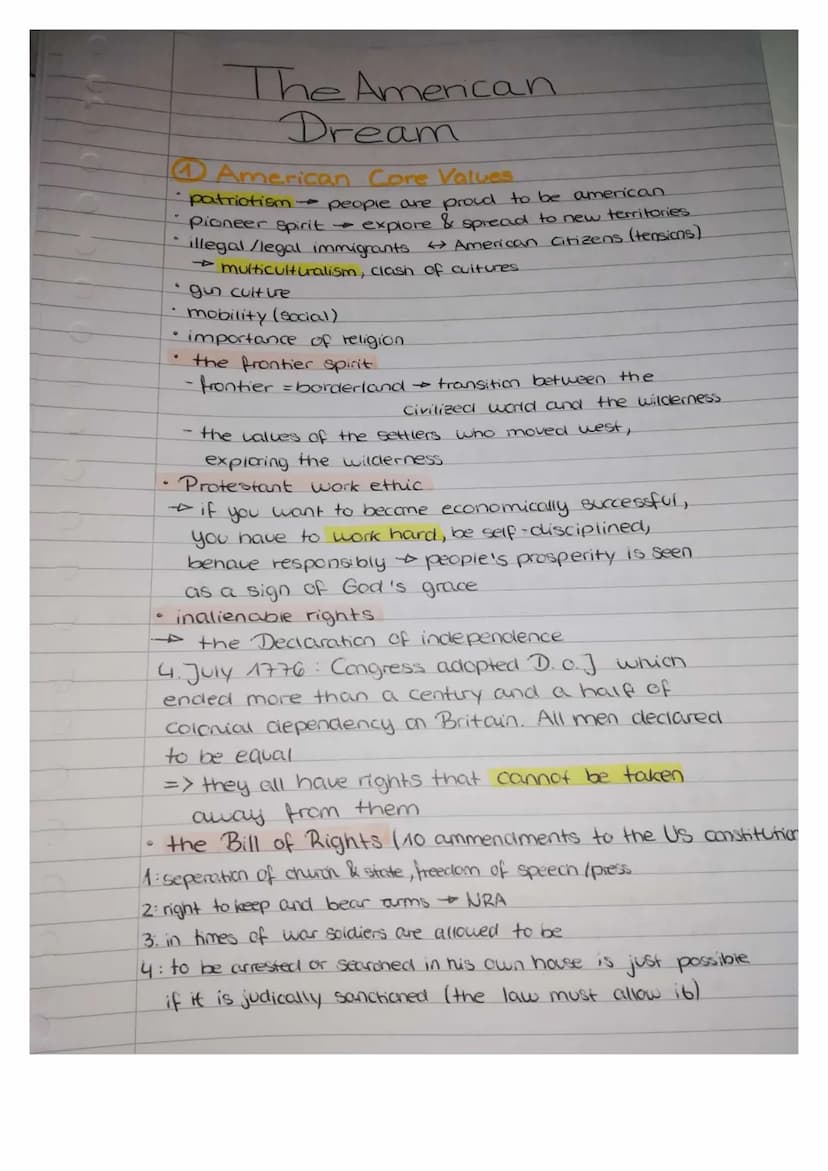 The American
Dream
① American Core Values
· patriotism → people are proud to be american
· pioneer spirit → explore & spread to new territories
· illegal/legal immigrants ↔ American Citizens (tensions)
→ multiculturalism, clash of cultures
· gun culture
· mobility (social)
· importance of religion
· the frontier spirit
- frontier = borderland → transition between the
civilized world and the wilderness
- the values of the settlers who moved west,
exploring the wilderness
· Protestant work ethic
→ if you want to become economically successful,
you have to work hard, be self-disciplined,
behave responsibly → people's prosperity is seen
as a sign of God's grace
· inalienable rights
→ the Declaration of independence
4. July 1776 : Congress adopted D.o.J which
ended more than a century and a half of
colonial dependency on Britain. All men declared
to be equal
=> they all have rights that cannot be taken
away from them
· the Bill of Rights (10 ammendments to the US constitution
1: seperation of church & state, freedom of speech /press
2: right to keep and bear arms → NRA
3: in times of war soldiers are allowed to be
4: to be arrested or searched in his own house is just possible
if it is judically sanctioned (the law must allow it)